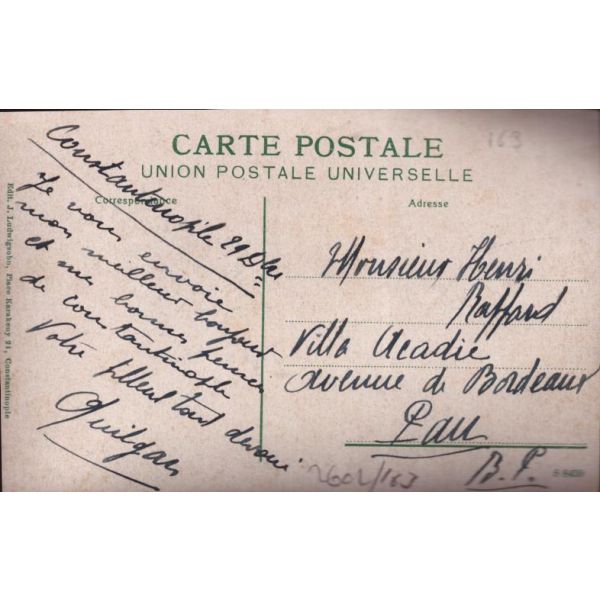 163
CARTE POSTALE
UNION POSTALE UNIVERSELLE
Correspondance
Adresse
Constantinople 29
Je vous envoie
mon meilleur bonjour
et me bonne pensée
de constantinople
Votre filleul tout dévoué
Monsieur Henri
Raffard
Villa Acadie
avenue de Bordeaux
Pau
B. P.
2602/163
Edit. J. Ludwigsohn, Place Karakeuy 21, Constantinople